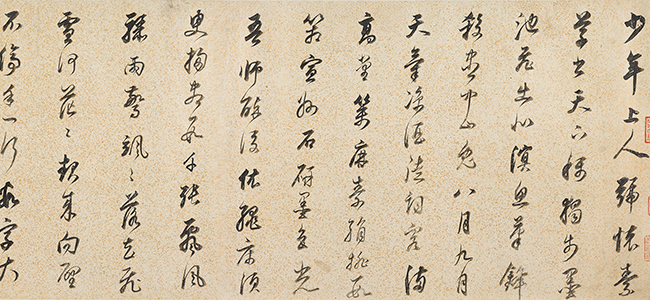 少年上人號懷素
草書天下稱獨步墨
池飛出北溟魚筆鋒
殺盡中山兔八月九月
天氣涼酒徒詞客滿
高堂箋麻素絹排數
箱宣州石硯墨色光
吾師醉後倚繩床須
臾掃盡數千張飄風
驟雨驚颯〻落花飛
雪何茫〻起來向壁
不停手一行數字大